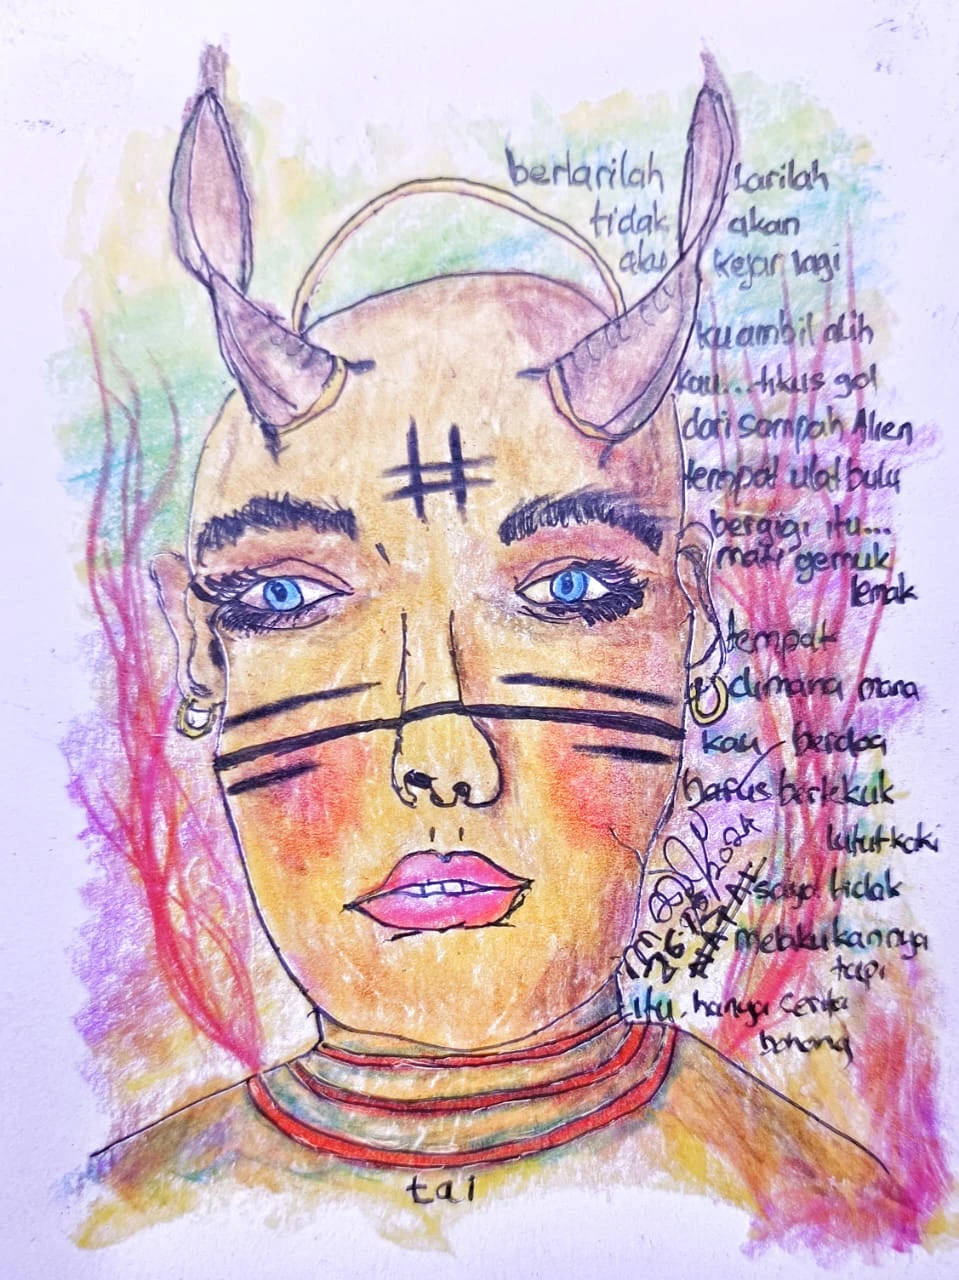 berlarilah larilah
tidak akan
aku kejar lagi
ku ambil alih
kau... tikus got
dari sampah Alien
tempat ulat bulu
bergigi itu...
mati gemuk
lemak
tempat
dimana mana
kau berdoa
harus bertekuk
lutut kaki
#saya tidak
melakukannya
tapi
itu. hanya cerita
bohong
2024
tai